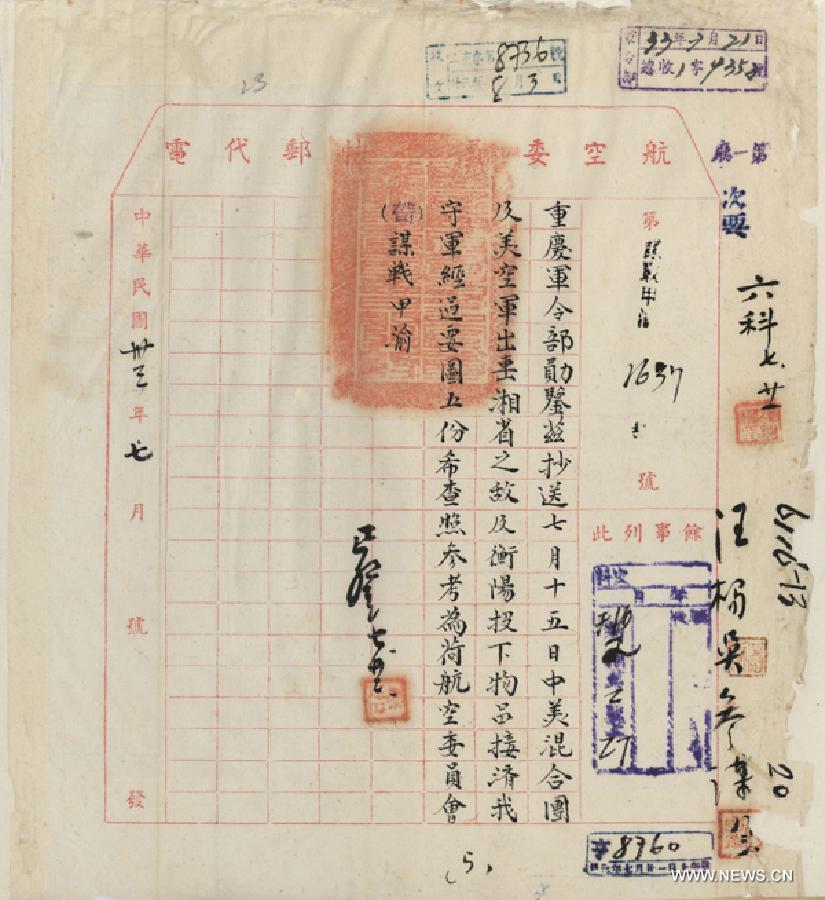 23
8736
8 3
33年7月21日
總收1字4358
航空委 快郵代電
第一廳
次要
六科 七、廿一
第
1637
號
餘事列此
重慶軍令部勛鑒茲抄送七月十五日中美混合團
及美空軍出擊湘省之敵及衡陽投下物品接濟我
守軍經過要圖五份希查照參考為荷航空委員會
謀戰甲渝
中華民國卅三年七月 號發
汪楊吳參謀
20
字8360
(5)
www.news.cn